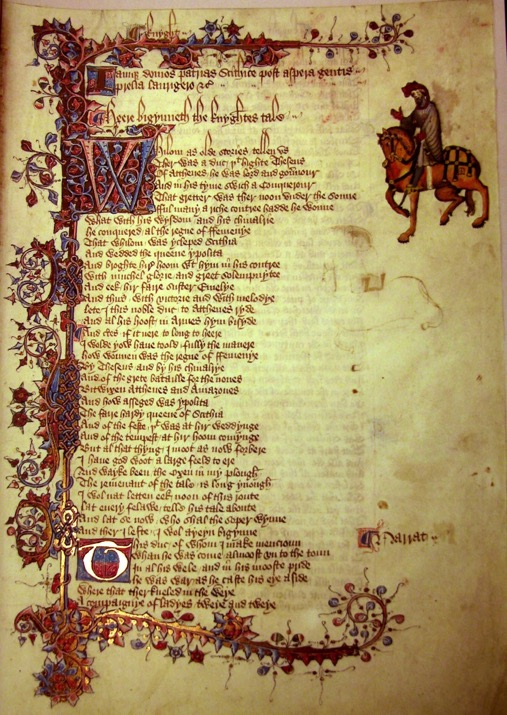 Knyght
Iamqȝ domos patrias Scithice post aspera gentis
prelia laurigero &c
Heere bigynneth the knyghtes tale
Whilom as olde stories tellen vs
Ther was a duc þt highte Theseus
Of Atthenes he was lord and gouernour
And in his tyme swich a Conquerour
That gretter was ther noon vnder the sonne
fful many a riche contree hadde he wonne
What with his wysdom and his chiualrie
he conquered al the regne of ffemenye
That whilom was ycleped Scithia
And wedded the queene ypolita
And broghte hir hoom wt hym in his contree
With muchel glorie and greet solempnytee
And eek hir faire suster Emelye
And thus with victorie and with melodye
lete I this noble duc to Atthenes ryde
And al his hoost in Armes hym bisyde
And certes if it nere to long to heere
I wolde yow haue toold fully the manere
how wonnen was the regne of ffemenye
By Theseus and by his chiualrye
And of the grete bataille for the nones
Bitwixen Atthenes and Amazones
And how asseged was ypolita
The faire hardy queene of Scithia
And of the feste þt was at hir weddynge
And of the tempest at hir hoom comynge
But al that thyng I moot as now forbere
I haue god woot a large feeld to ere
And wayke been the oxen in my plough
The remenant of the tale is long ynough
I wol nat letten eek noon of this route
lat euery felawe telle his tale aboute
And lat se now who shal the soper wynne
And ther I lefte I wol ayeyn bigynne
This duc of whom I make mencioun
Narrat
Whan he was come almoost vn to the toun
In al his wele and in his mooste pride
he was war as he caste his eye aside
Where that ther kneled in the weye
A compaignye of ladyes tweye and tweye